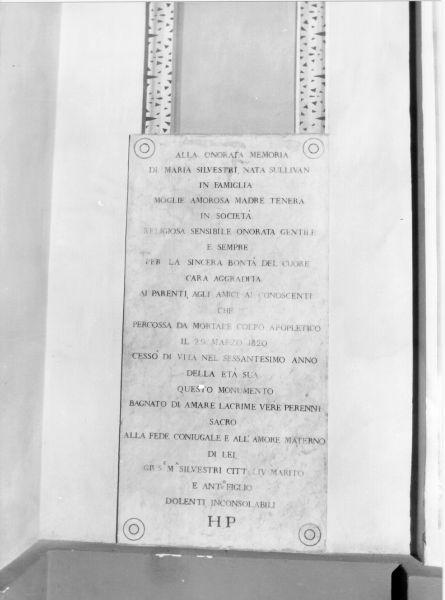 ALLA ONORATA MEMORIA
DI MARIA SILVESTRI, NATA SULLIVAN
IN FAMIGLIA
MOGLIE AMOROSA MADRE TENERA
IN SOCIETÀ
RELIGIOSA SENSIBILE ONORATA GENTILE
E SEMPRE
PER LA SINCERA BONTÀ DEL CUORE
CARA AGGRADITA
AI PARENTI, AGLI AMICI AI CONOSCENTI
CHE
PERCOSSA DA MORTALE COLPO APOPLETICO
IL 29 MARZO 1820
CESSÒ DI VITA NEL SESSANTESIMO ANNO
DELLA ETÀ SUA
QUESTO MONUMENTO
BAGNATO DI AMARE LACRIME VERE PERENNI
SACRO
ALLA FEDE CONIUGALE E ALL'AMORE MATERNO
DI LEI
SILVESTRI CITT. LIV. MARITO
E ANT.° FIGLIO
DOLENTI INCONSOLABILI
HP